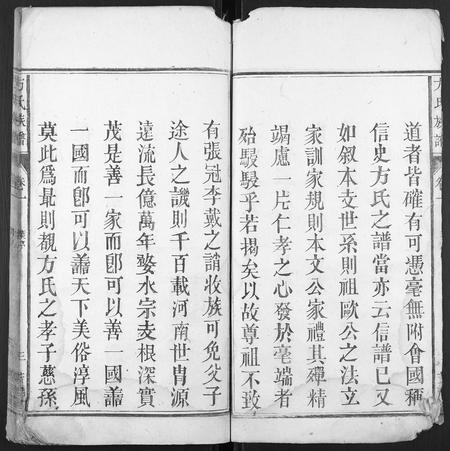 方氏族譜
卷一
道者皆確有可憑毫無附會國稱
信史方氏之譜當亦云信譜已又
如叙本支世系則祖歐公之法立
家訓家規則本文公家禮其殫精
竭慮一片仁孝之心發於毫端者
殆駸駸乎若揭矣以故尊祖不致
有張冠李戴之誚收族可免父子
途人之譏則千百載河南世胄源
遠流長億萬年婺水宗支根深實
茂是善一家而卽可以善一國譱
一國而卽可以譱天下美俗淳風
莫此爲最則覩方氏之孝子慈孫
方氏族譜
卷一
三